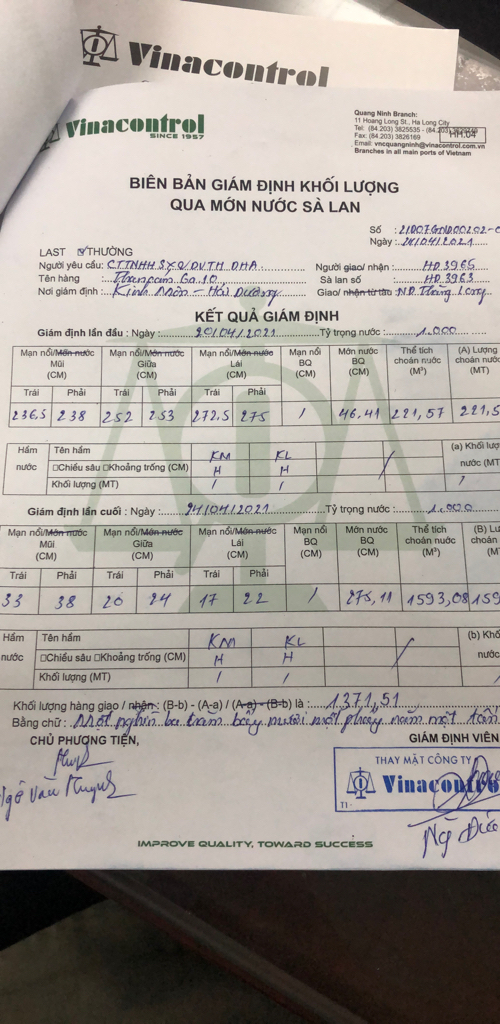 Vinacontrol
Vinacontrol
SINCE 1957
Quang Ninh Branch:
11 Hoang Long St., Ha Long City
Tel: (84.203) 3825535 - (84.203)
Fax: (84.203) 3826169
HH.04
Email: vncquangninh@vinacontrol.com.vn
Branches in all main ports of Vietnam
BIÊN BẢN GIÁM ĐỊNH KHỐI LƯỢNG
QUA MỚN NƯỚC SÀ LAN
Số :
Ngày : 24/04/2021
LAST ☑THƯỜNG
Người yêu cầu: CTTNHH SX & DVTM DHA
Người giao/ nhận : HD 3965
Tên hàng : Than cám 6a.10
Sà lan số : HD 3963
Nơi giám định : Kinh Môn - Hải Dương
Giao/ nhận từ tàu : NĐ. Thăng Long
KẾT QUẢ GIÁM ĐỊNH
Giám định lần đầu : Ngày : 20/04/2021 Tỷ trọng nước : 1.000
Mạn nổi/Mớn nước Mũi (CM) Mạn nổi/Mớn nước Giữa (CM) Mạn nổi/Mớn nước Lái (CM) Mạn nổi BQ (CM) Mớn nước BQ (CM) Thể tích choán nước (M³) (A) Lượng choán nước (MT)
Trái Phải Trái Phải Trái Phải
236,5 238 252 253 272,5 275 / 46.41 221,57 221,5
Hầm nước Tên hầm KM KL / (a) Khối lượ nước (MT
☐Chiều sâu ☐Khoảng trống (CM) H H
Khối lượng (MT) / / /
Giám định lần cuối : Ngày : 24/04/2021 Tỷ trọng nước : 1.000
Mạn nổi/Mớn nước Mũi (CM) Mạn nổi/Mớn nước Giữa (CM) Mạn nổi/Mớn nước Lái (CM) Mạn nổi BQ (CM) Mớn nước BQ (CM) Thể tích choán nước (M³) (B) Lư choán (M
Trái Phải Trái Phải Trái Phải
33 38 20 24 17 22 / 275,11 1593,08 159
Hầm nước Tên hầm KM KL / (b) Khố nước
☐Chiều sâu ☐Khoảng trống (CM) H H
Khối lượng (MT) / / /
Khối lượng hàng giao / nhận : (B-b) - (A-a) / (A-a) - (B-b) là : 1.371,51
Bằng chữ : Một nghìn ba trăm bảy mươi một phẩy năm một tấn
CHỦ PHƯƠNG TIỆN, GIÁM ĐỊNH VIÊN
THAY MẶT CÔNG TY
Vinacontrol
Ngô Văn Huynh
IMPROVE QUALITY, TOWARD SUCCESS